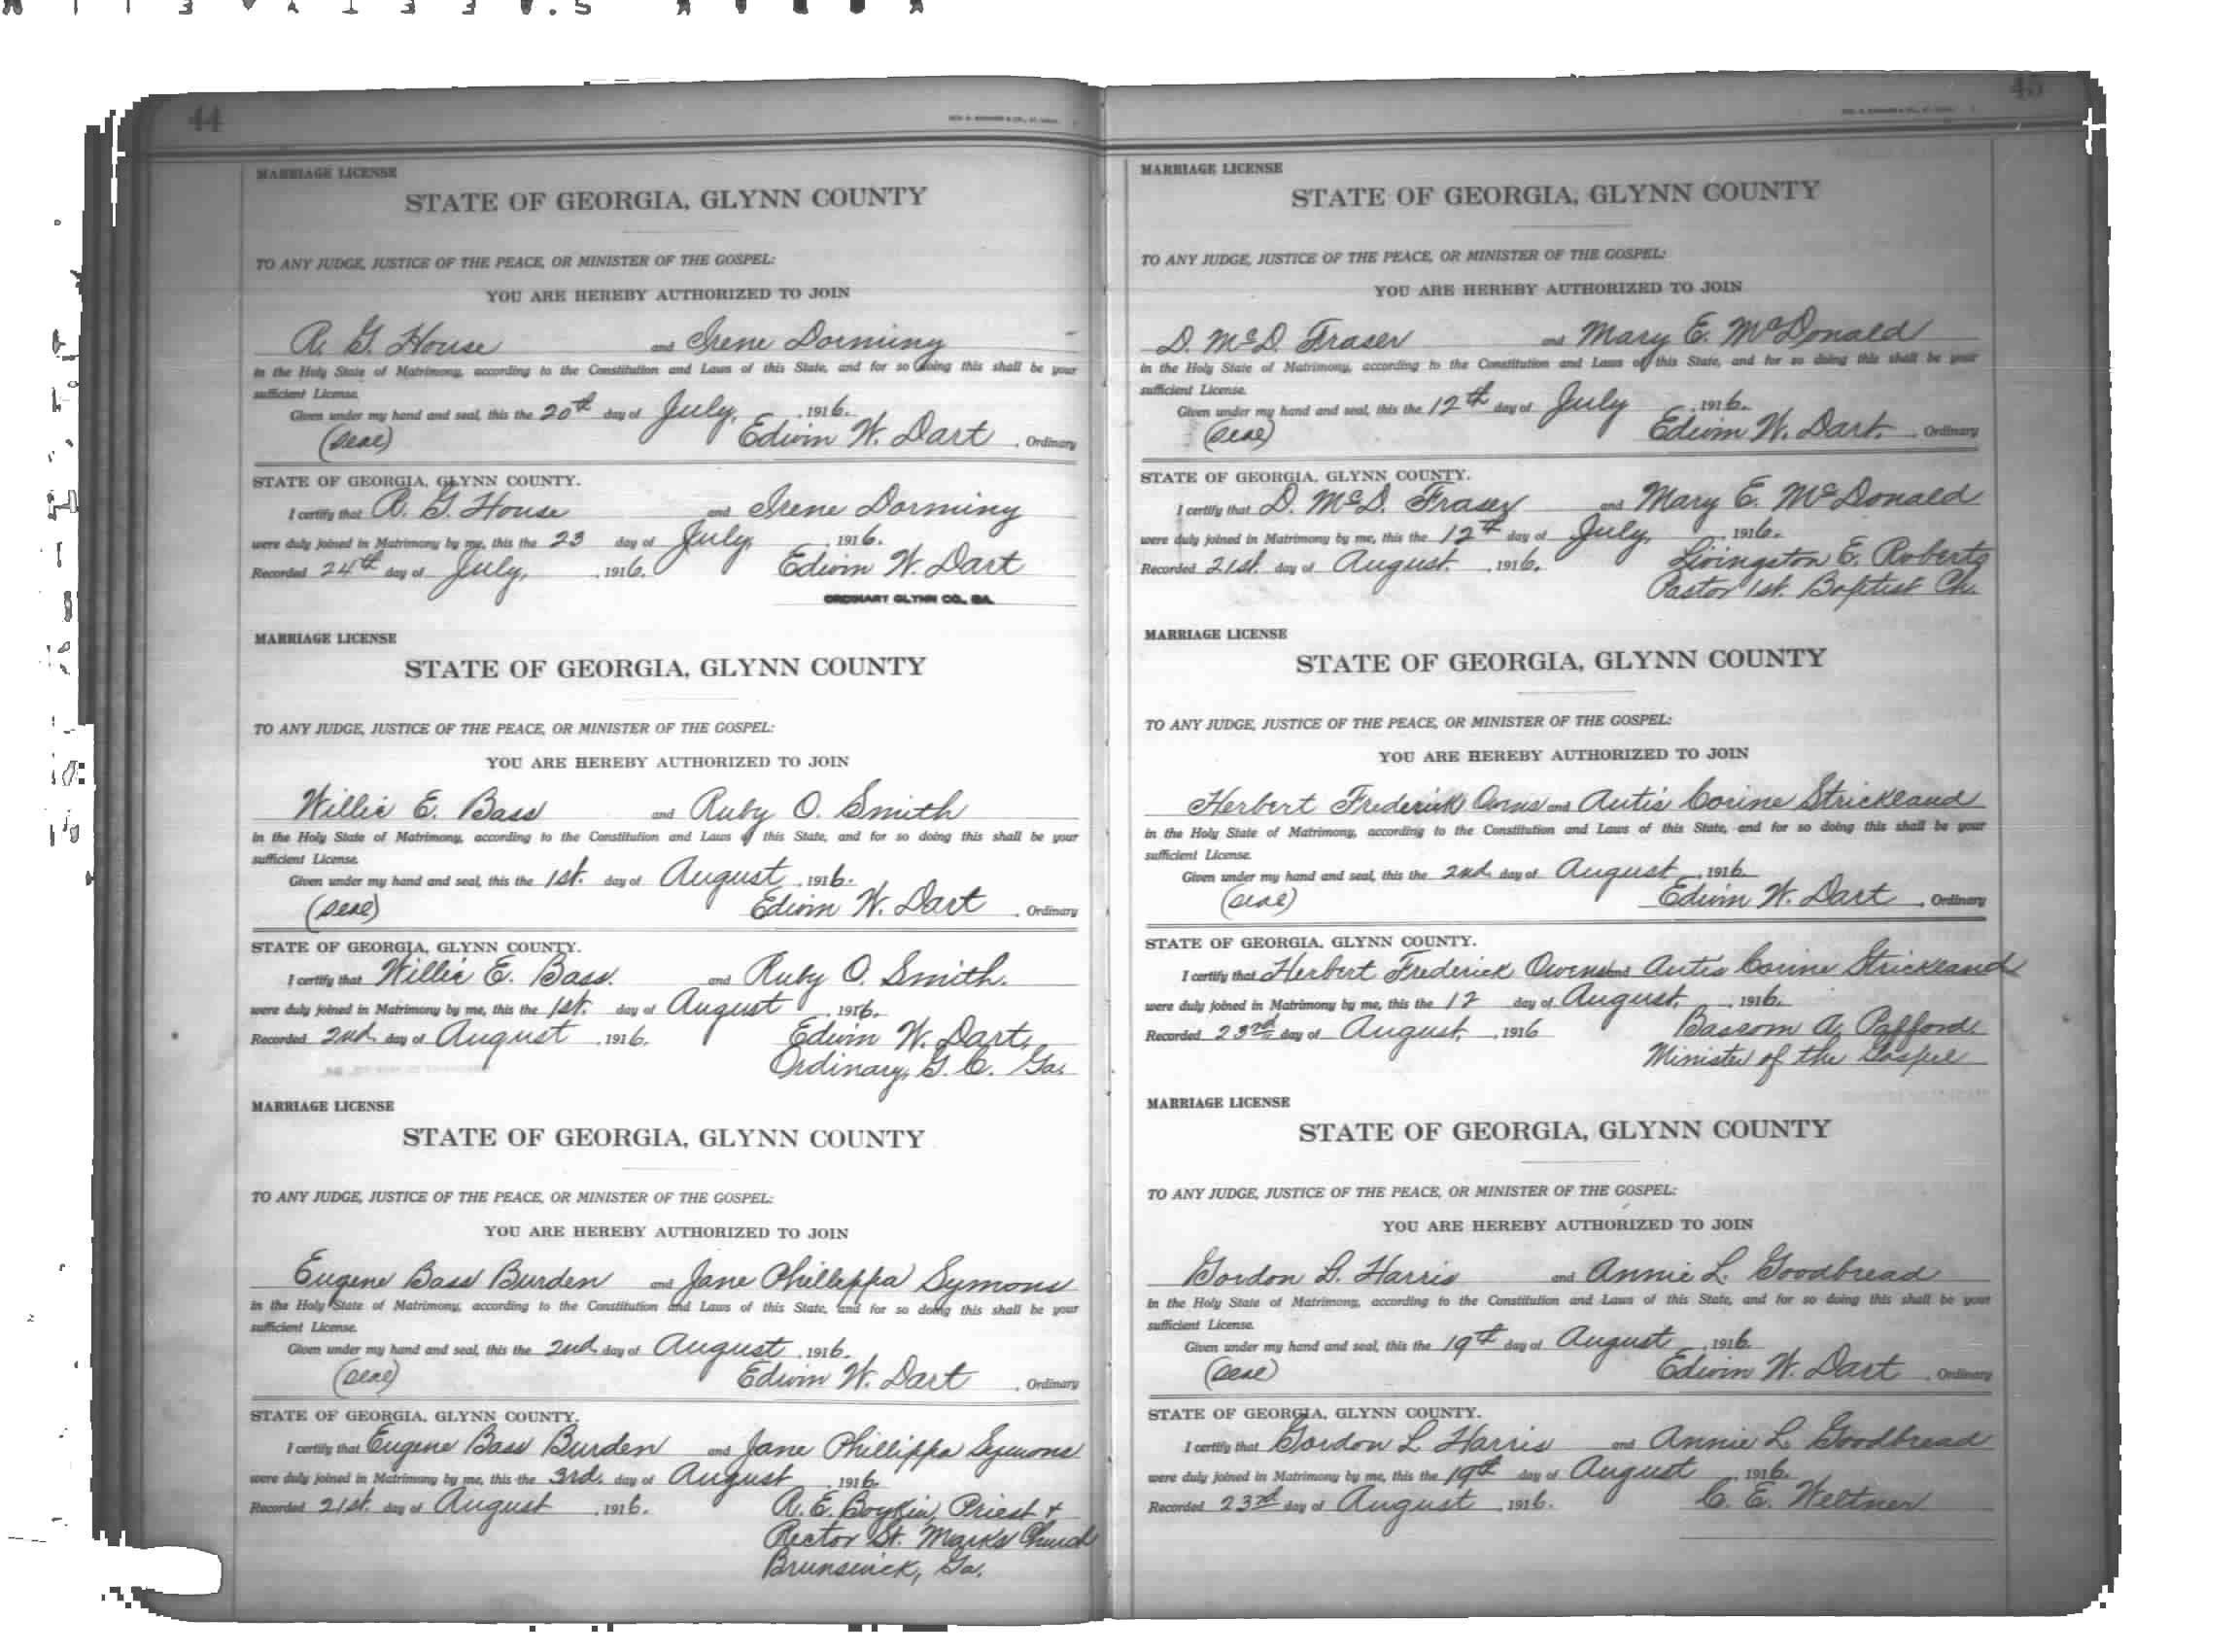 44
MARRIAGE LICENSE
STATE OF GEORGIA, GLYNN COUNTY
TO ANY JUDGE, JUSTICE OF THE PEACE, OR MINISTER OF THE GOSPEL:
YOU ARE HEREBY AUTHORIZED TO JOIN
R. G. House and Irene Dorminy
in the Holy State of Matrimony, according to the Constitution and Laws of this State, and for so doing this shall be your
sufficient License.
Given under my hand and seal, this the 20th day of July, 1916.
(seal) Edwin W. Dart, Ordinary
STATE OF GEORGIA, GLYNN COUNTY.
I certify that R. G. House and Irene Dorminy
were duly joined in Matrimony by me, this the 23 day of July, 1916.
Recorded 24th day of July, 1916. Edwin W. Dart
ORDINARY GLYNN CO., GA.
MARRIAGE LICENSE
STATE OF GEORGIA, GLYNN COUNTY
TO ANY JUDGE, JUSTICE OF THE PEACE, OR MINISTER OF THE GOSPEL:
YOU ARE HEREBY AUTHORIZED TO JOIN
Willie E. Bass and Ruby O. Smith
in the Holy State of Matrimony, according to the Constitution and Laws of this State, and for so doing this shall be your
sufficient License.
Given under my hand and seal, this the 1st. day of August, 1916.
(seal) Edwin W. Dart, Ordinary
STATE OF GEORGIA, GLYNN COUNTY.
I certify that Willie E. Bass. and Ruby O. Smith.
were duly joined in Matrimony by me, this the 1st. day of August, 1916.
Recorded 2nd day of August, 1916. Edwin W. Dart,
Ordinary, G. C. Ga.
MARRIAGE LICENSE
STATE OF GEORGIA, GLYNN COUNTY
TO ANY JUDGE, JUSTICE OF THE PEACE, OR MINISTER OF THE GOSPEL:
YOU ARE HEREBY AUTHORIZED TO JOIN
Eugene Bass Burden and Jane Phillippa Symons
in the Holy State of Matrimony, according to the Constitution and Laws of this State, and for so doing this shall be your
sufficient License.
Given under my hand and seal, this the 2nd day of August, 1916.
(seal) Edwin W. Dart, Ordinary
STATE OF GEORGIA, GLYNN COUNTY.
I certify that Eugene Bass Burden and Jane Phillippa Symons
were duly joined in Matrimony by me, this the 3rd. day of August, 1916
Recorded 21st. day of August, 1916. R. E. Boykin, Priest +
Rector St. Marks Church
Brunswick, Ga.
45
MARRIAGE LICENSE
STATE OF GEORGIA, GLYNN COUNTY
TO ANY JUDGE, JUSTICE OF THE PEACE, OR MINISTER OF THE GOSPEL:
YOU ARE HEREBY AUTHORIZED TO JOIN
D. McD. Fraser and Mary E. McDonald
in the Holy State of Matrimony, according to the Constitution and Laws of this State, and for so doing this shall be your
sufficient License.
Given under my hand and seal, this the 12th day of July, 1916.
(seal) Edwin W. Dart., Ordinary
STATE OF GEORGIA, GLYNN COUNTY.
I certify that D. McD. Fraser and Mary E. McDonald
were duly joined in Matrimony by me, this the 12th day of July, 1916.
Recorded 21st. day of August, 1916. Livingston E. Roberts
Pastor 1st. Baptist Ch.
MARRIAGE LICENSE
STATE OF GEORGIA, GLYNN COUNTY
TO ANY JUDGE, JUSTICE OF THE PEACE, OR MINISTER OF THE GOSPEL:
YOU ARE HEREBY AUTHORIZED TO JOIN
Herbert Frederick Owens and Autis Corine Strickland
in the Holy State of Matrimony, according to the Constitution and Laws of this State, and for so doing this shall be your
sufficient License.
Given under my hand and seal, this the 2nd day of August, 1916
(seal) Edwin W. Dart, Ordinary
STATE OF GEORGIA, GLYNN COUNTY.
I certify that Herbert Frederick Owens and Autis Corine Strickland
were duly joined in Matrimony by me, this the 12 day of August, 1916.
Recorded 23rd day of August, 1916 Bascom A. Pafford.
Minister of the Gospel
MARRIAGE LICENSE
STATE OF GEORGIA, GLYNN COUNTY
TO ANY JUDGE, JUSTICE OF THE PEACE, OR MINISTER OF THE GOSPEL:
YOU ARE HEREBY AUTHORIZED TO JOIN
Gordon L. Harris and Annie L. Goodbread
in the Holy State of Matrimony, according to the Constitution and Laws of this State, and for so doing this shall be your
sufficient License.
Given under my hand and seal, this the 19th day of August, 1916
(seal) Edwin W. Dart, Ordinary
STATE OF GEORGIA, GLYNN COUNTY.
I certify that Gordon L Harris and Annie L. Goodbread
were duly joined in Matrimony by me, this the 19th day of August, 1916.
Recorded 23rd day of August, 1916. C. E. Weltner